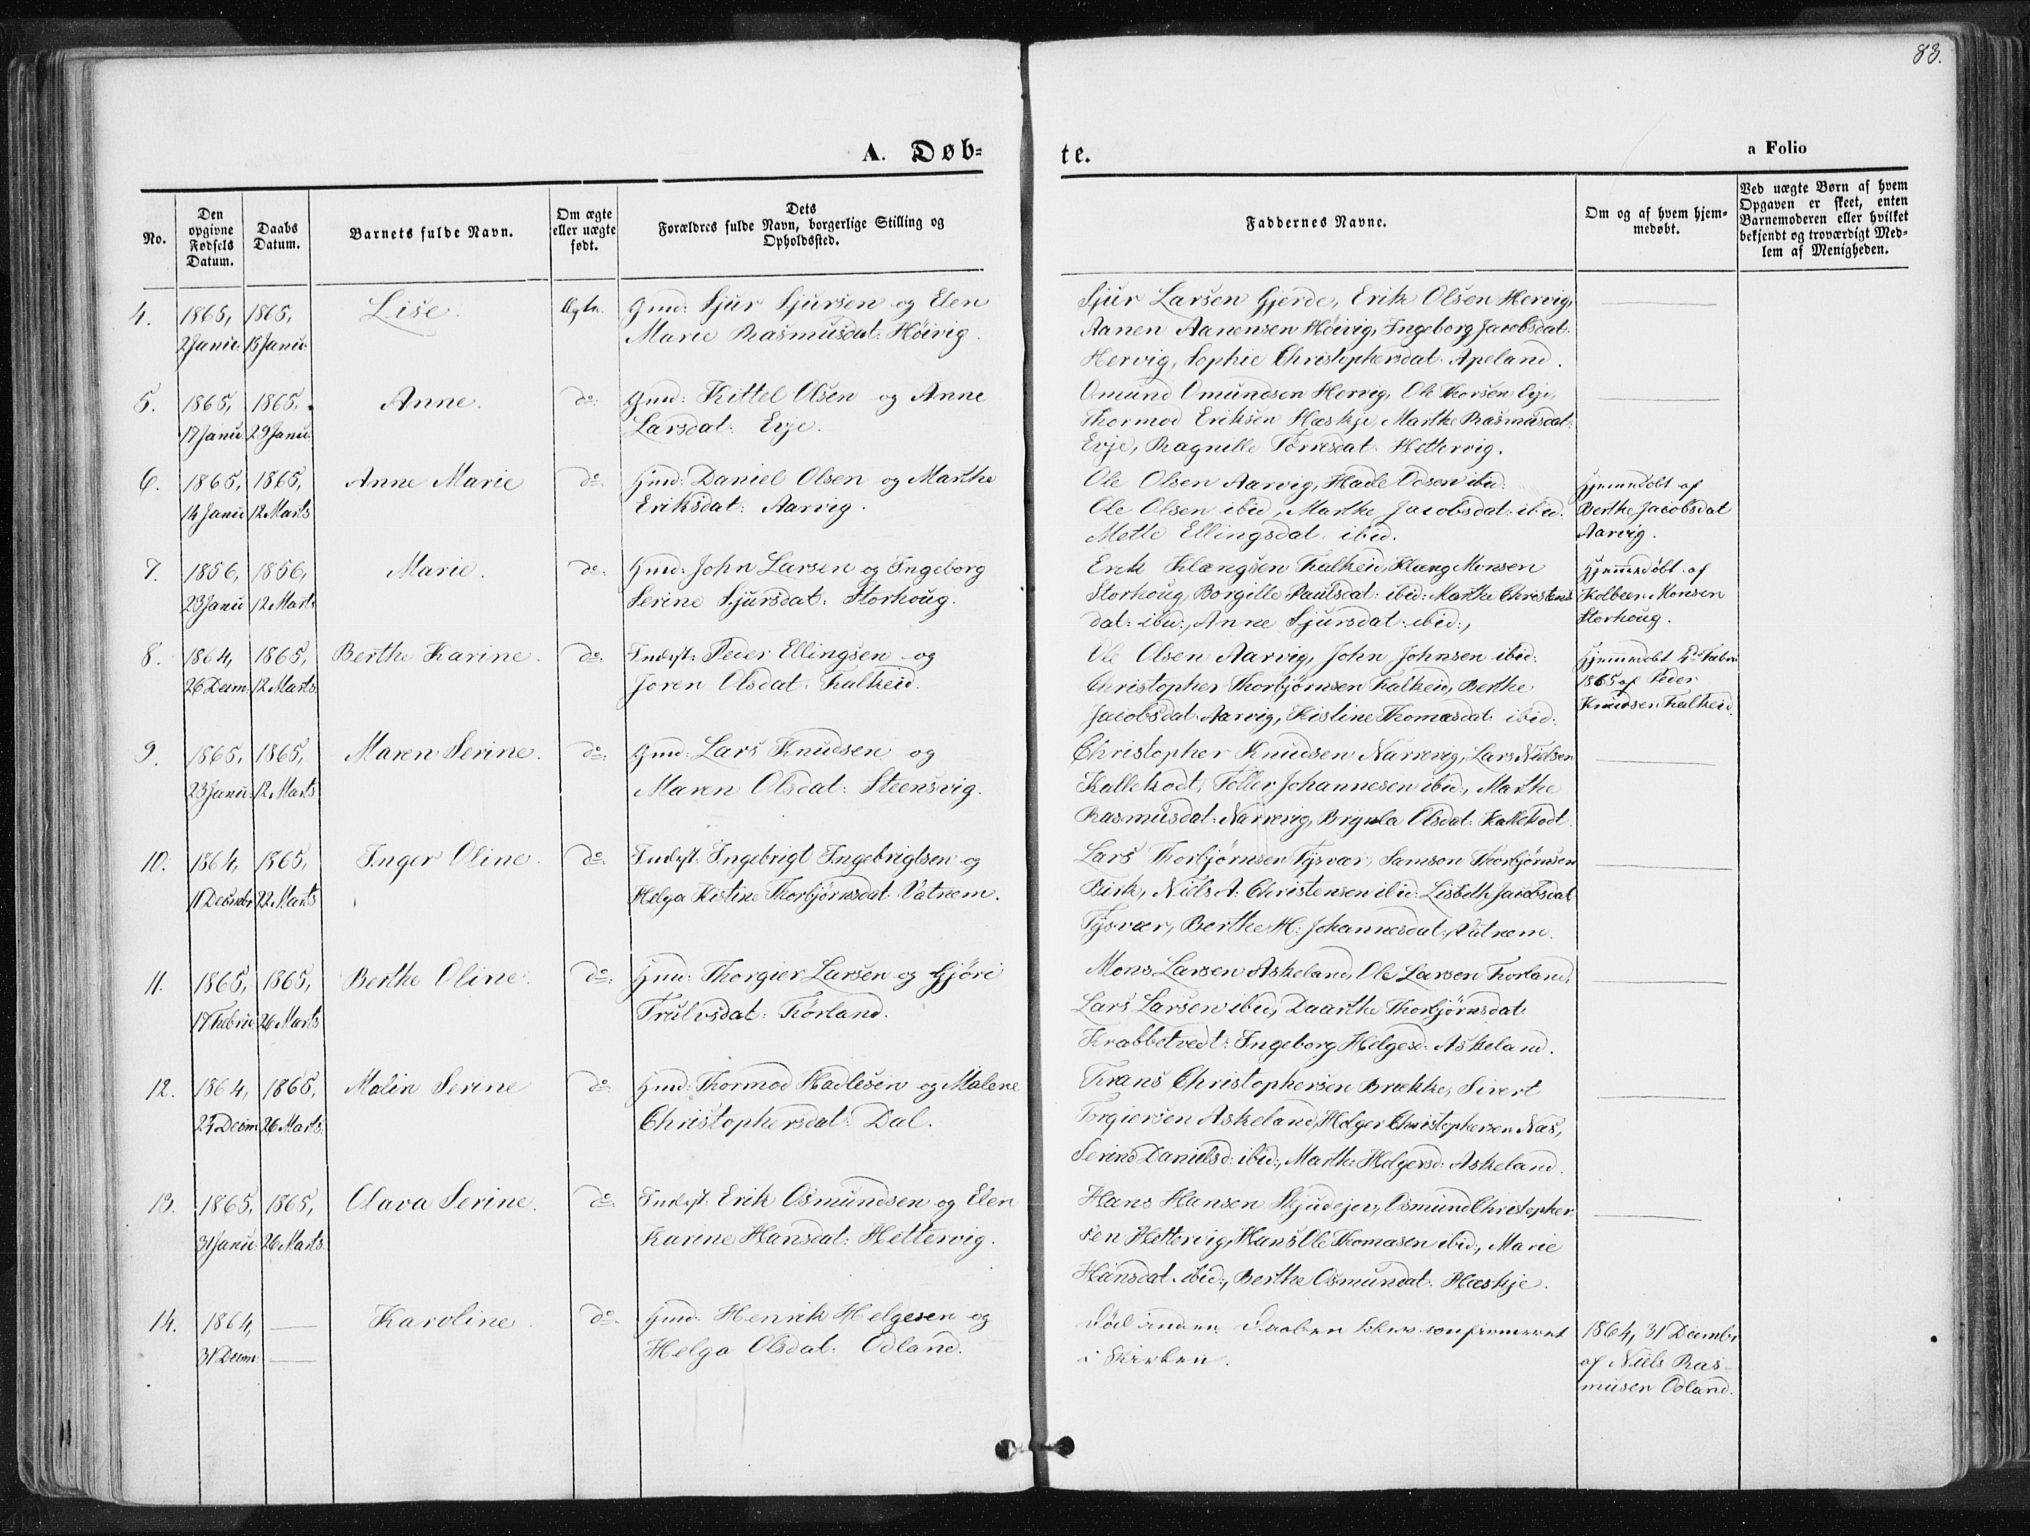 83.
A. Døb-
te.
a Folio
No.
Den
opgivne
Fødsels
Datum.
Daabs
Datum.
Barnets fulde Navn.
Om ægte
eller uægte
født.
Dets
Forældres fulde Navn, borgerlige Stilling og
Opholdssted.
Faddernes Navne.
Om og af hvem hjem-
medøbt.
Ved uægte Børn af hvem
Opgaven er skeet, enten
Barnemoderen eller hvilket
bekjendt og troværdigt Med-
lem af Menigheden.
4. 1865, 1865, Lise. Ægte. Gmd: Sjur Sjursen og Elen
2 Janu: 15 Janu: Marie Rasmusdat: Høivig.
Sjur Larsen Gjerde, Erik Olsen Hervig,
Aanen Aanensen Høivig, Ingeborg Jacobsdat:
Hervig, Sophie Christophersdat: Apeland.
5. 1865, 1865, Anne. do: Gmd: Kittel Olsen og Anne
17 Janu: 29 Janu: Larsdat: Evje.
Omund Omundsen Hervig, Ole Thorsen Evje,
Thormod Eriksen Hæskje, Marthe Rasmusdat:
Evje, Ragnille Torresdat: Hettervig.
6. 1865, 1865, Anne Marie do: Gmd: Daniel Olsen og Marthe
14 Janu: 12 Marts Eriksdat: Aarvig.
Ole Olsen Aarvig, Hadle Odsen ibid:
Ole Olsen ibid, Marthe Jacobsdat: ibid:
Mette Ellingsdat. ibid.
Hjemmedøbt af
Berthe Jacobsdat
Aarvig.
7. 1856, 1856, Marie. do: Gmd: John Larsen og Ingeborg
23 Janu 12 Marts Serine Sjursdat: Storhoug.
Erik Klængsen Falkeid, Klæng Monsen
Storhoug, Borgille Paulsdat: ibid: Marthe Christens
dat: ibid:, Anne Sjursdat: ibid:,
Hjemmedøbt af
Kolbeen Monsen
Storhoug.
8. 1864, 1865, Berthe Karine. do: Inderst: Peder Ellingsen og
26 Decm: 12 Marts. Joren Olsdat: Falkeid.
Ole Olsen Aarvig, John Johnsen ibid:
Christopher Thorbjørnsen Falkeid, Berthe
Jacobsdat: Aarvig, Kistine Thomasdat: ibid:
Hjemmedøbt 4de Febru
1865 af Peder
Knudsen Falkeid.
9. 1865, 1865, Maren Serine. do: Gmd: Lars Knudsen og
23 Janu: 12 Marts Maren Olsdat: Steensvig.
Christopher Knudsen Narrevig, Lars Nielsen
Kallekodt, Toller Johannesen ibid:, Marthe
Rasmusdat: Narrevig, Brynla Olsdat: Kallekodt
10. 1864, 1865, Inger Oline. do: Inderst: Ingebrigt Ingebrigtsen og
11 Decmbr 22 Marts Helga Kistine Thorbjørnsdat: Vatnem.
Lars Thorbjørnsen Tysvær, Samson Thorbjørnsen
Birk, Niels A: Christensen ibid: Lisbeth Jacobsdat
Tysvær, Berthe M: Johannesdat:, Vatnem.
11. 1865, 1865, Berthe Oline. do: Gmd: Thorgier Larsen og Gjøri
17 Febru: 26 Marts Trulvsdat: Førland.
Mons Larsen Askeland, Ole Larsen Førland,
Lars Larsen ibid, Daarthe Thorbjørnsdat:
Krabbetvedt: Ingeborg Helgesd: Askeland.
12. 1864, 1865, Malin Serine do Gmd: Thormod Hadlesen og Malene
27 Decm 26 Marts: Christophersdat: Dal.
Frans Christophersen Brække, Sivert
Torgiersen Askeland, Holger Christophersen Næs,
Serina Danielsd: ibid:, Marthe Holgersd: Askeland.
13. 1865, 1865, Olava Serine. do Inderst: Erik Osmundsen og Elen
31 Janu: 26 Marts. Karine Hansdat: Hettervig.
Hans Hansen Skjudejer, Osmund Christopher
sen Hettervig, Hans Ole Thomasen ibid:, Marie
Hansdat: ibid:, Berthe Osmundat: Hæskje.
14. 1864, Karoline. do: Gmd: Henrik Helgesen og
31 Decm Helga Olsdat: Odland.
Død inden Daaben blev confirmeret
i Kirken.
1864, 31 Decembr
af Niels Ras-
musen Odland.